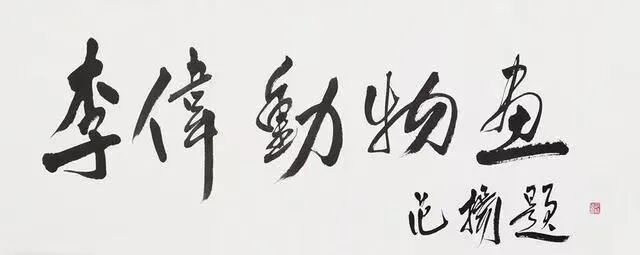 李偉動物畫
范揚題